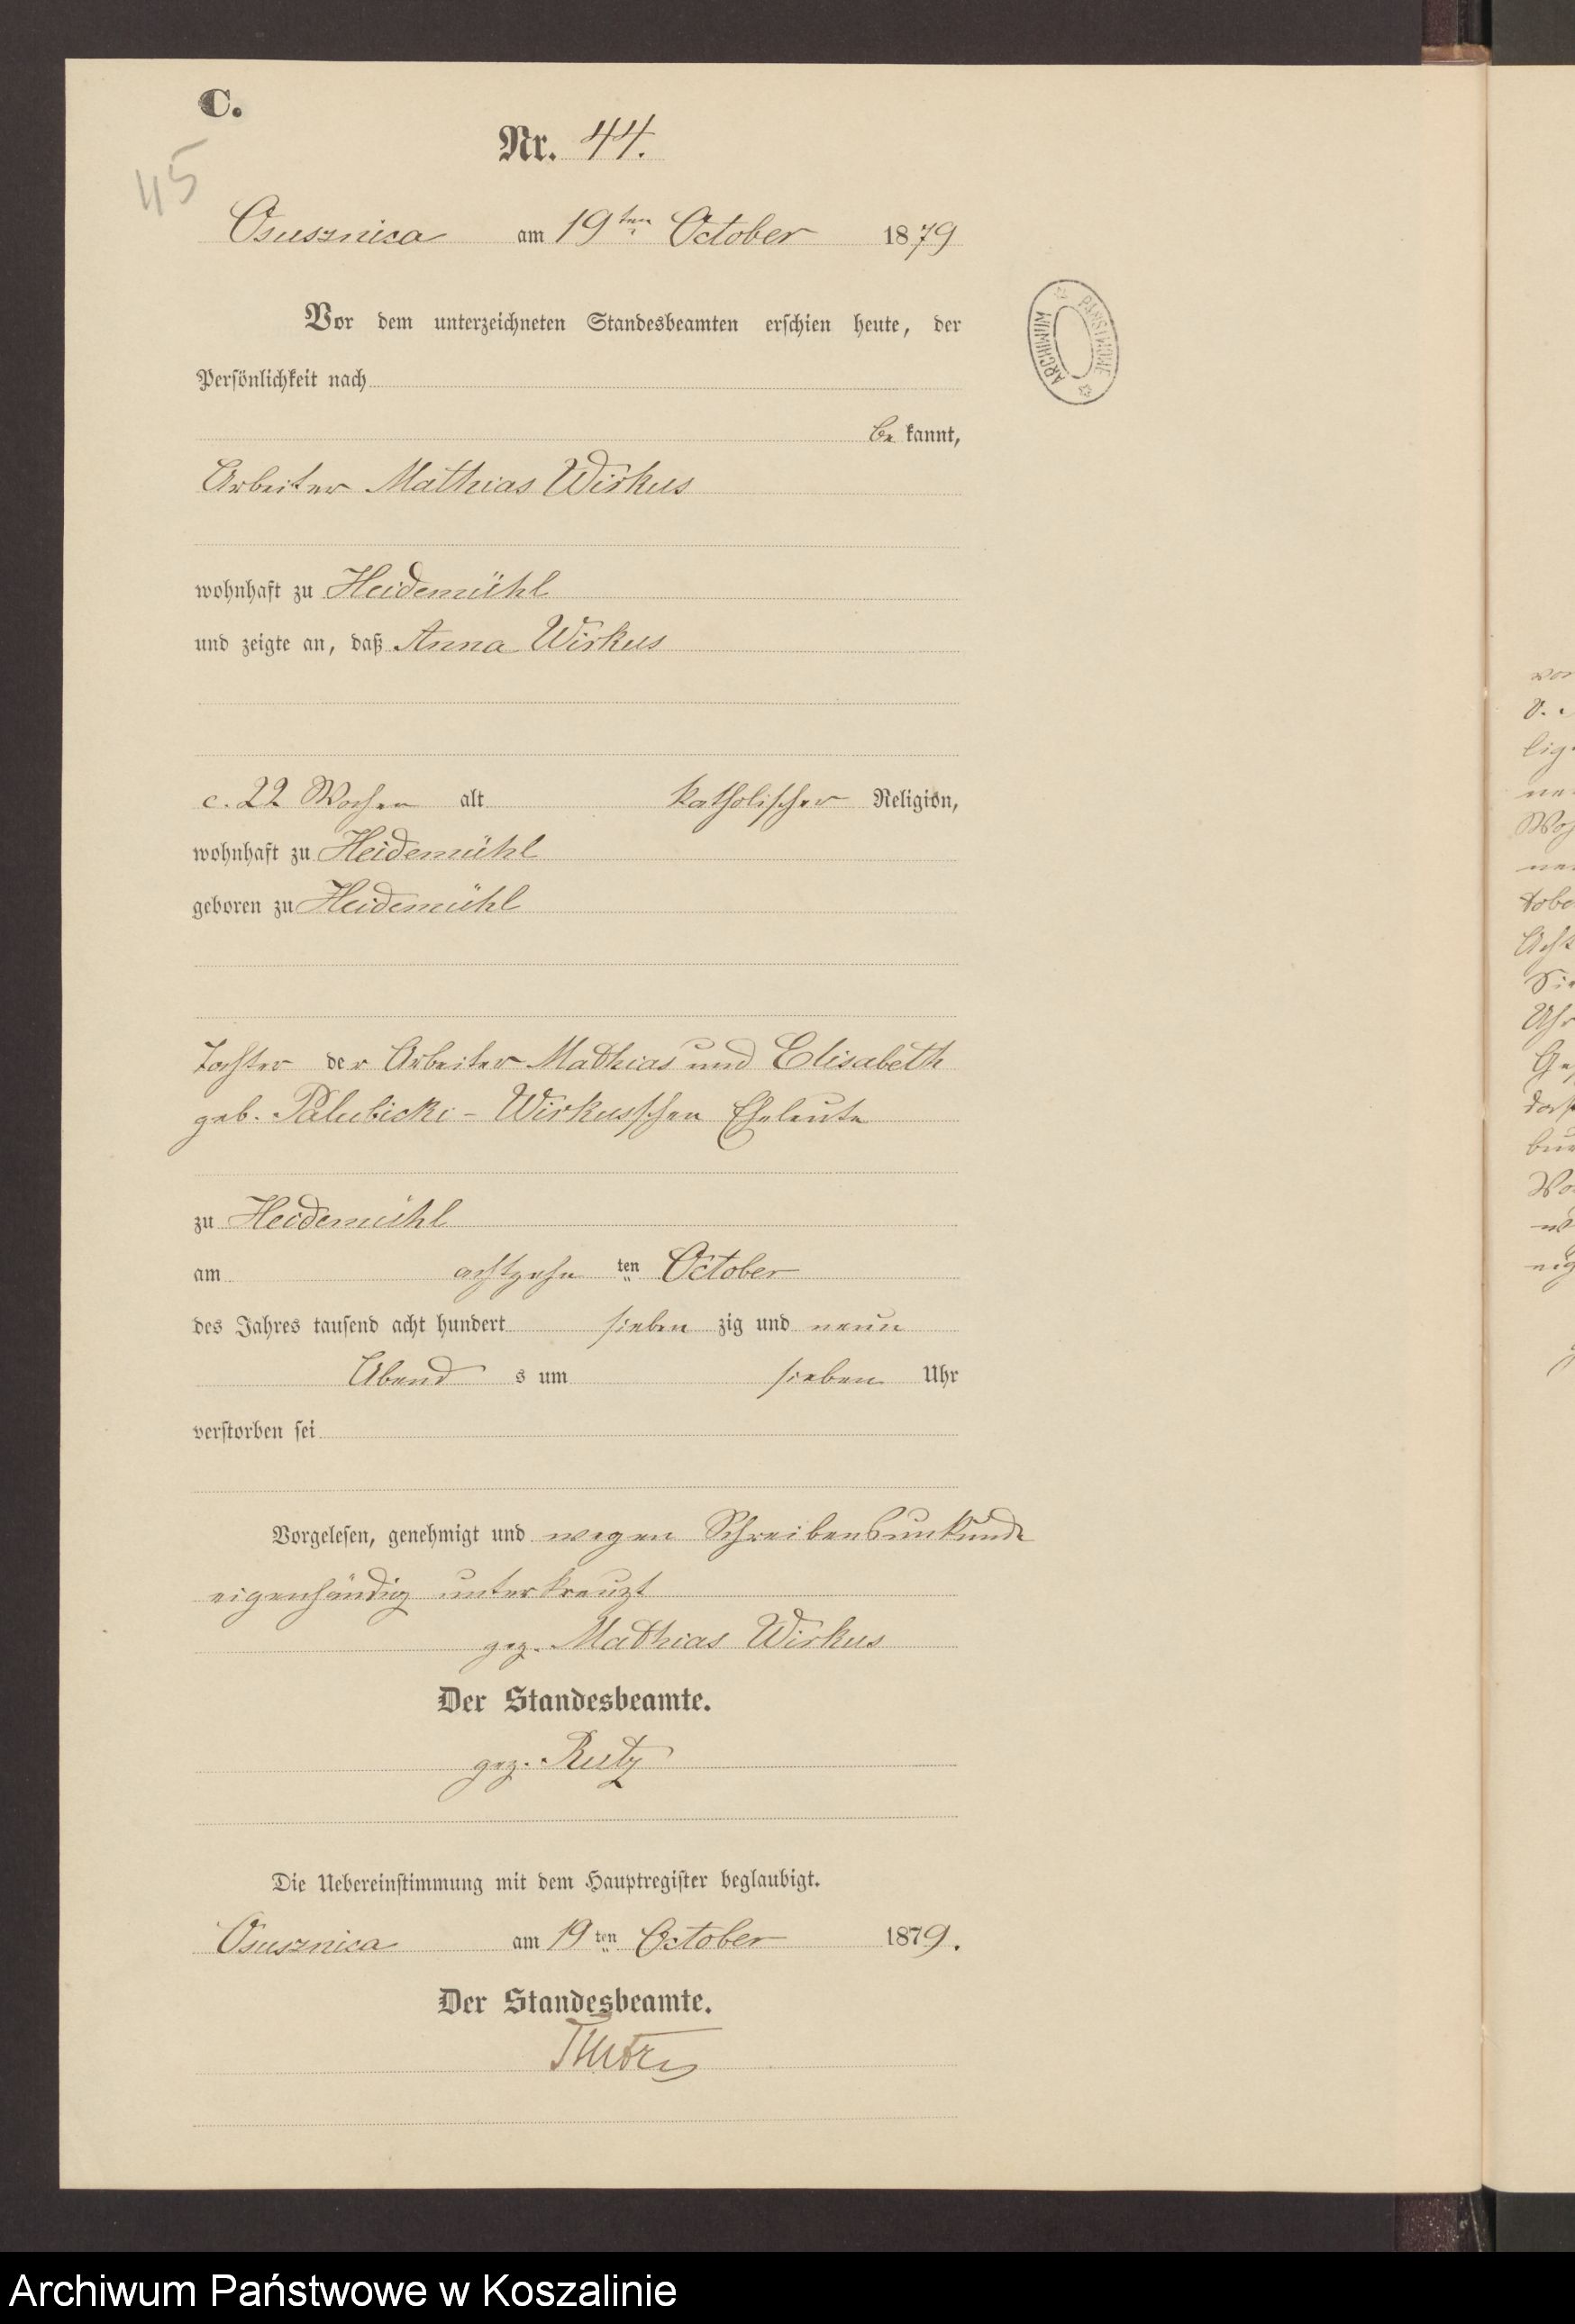 C.
Nr. 44.
45
Osusznica am 19ten October 1879
Vor dem unterzeichneten Standesbeamten erschien heute, der
Persönlichkeit nach
be kannt,
Arbeiter Mathias Wirkus
wohnhaft zu Heidemühl
und zeigte an, daß Anna Wirkus
c. 22 Wochen alt katholischer Religion,
wohnhaft zu Heidemühl
geboren zu Heidemühl
Tochter der Arbeiter Mathias und Elisabeth
geb. Palubicki - Wirkusschen Eheleute
zu Heidemühl
am achtzehn ten October
des Jahres tausend acht hundert sieben zig und neun
Abend s um sieben Uhr
verstorben sei
Vorgelesen, genehmigt und wegen Schreibensunkunde
eigenhändig unterkreuzt
gez. Mathias Wirkus
Der Standesbeamte.
gez. Rutz
Die Uebereinstimmung mit dem Hauptregister beglaubigt.
Osusznica am 19ten October 1879.
Der Standesbeamte.
ARCHIWUM PAŃSTWOWE
Archiwum Państwowe w Koszalinie